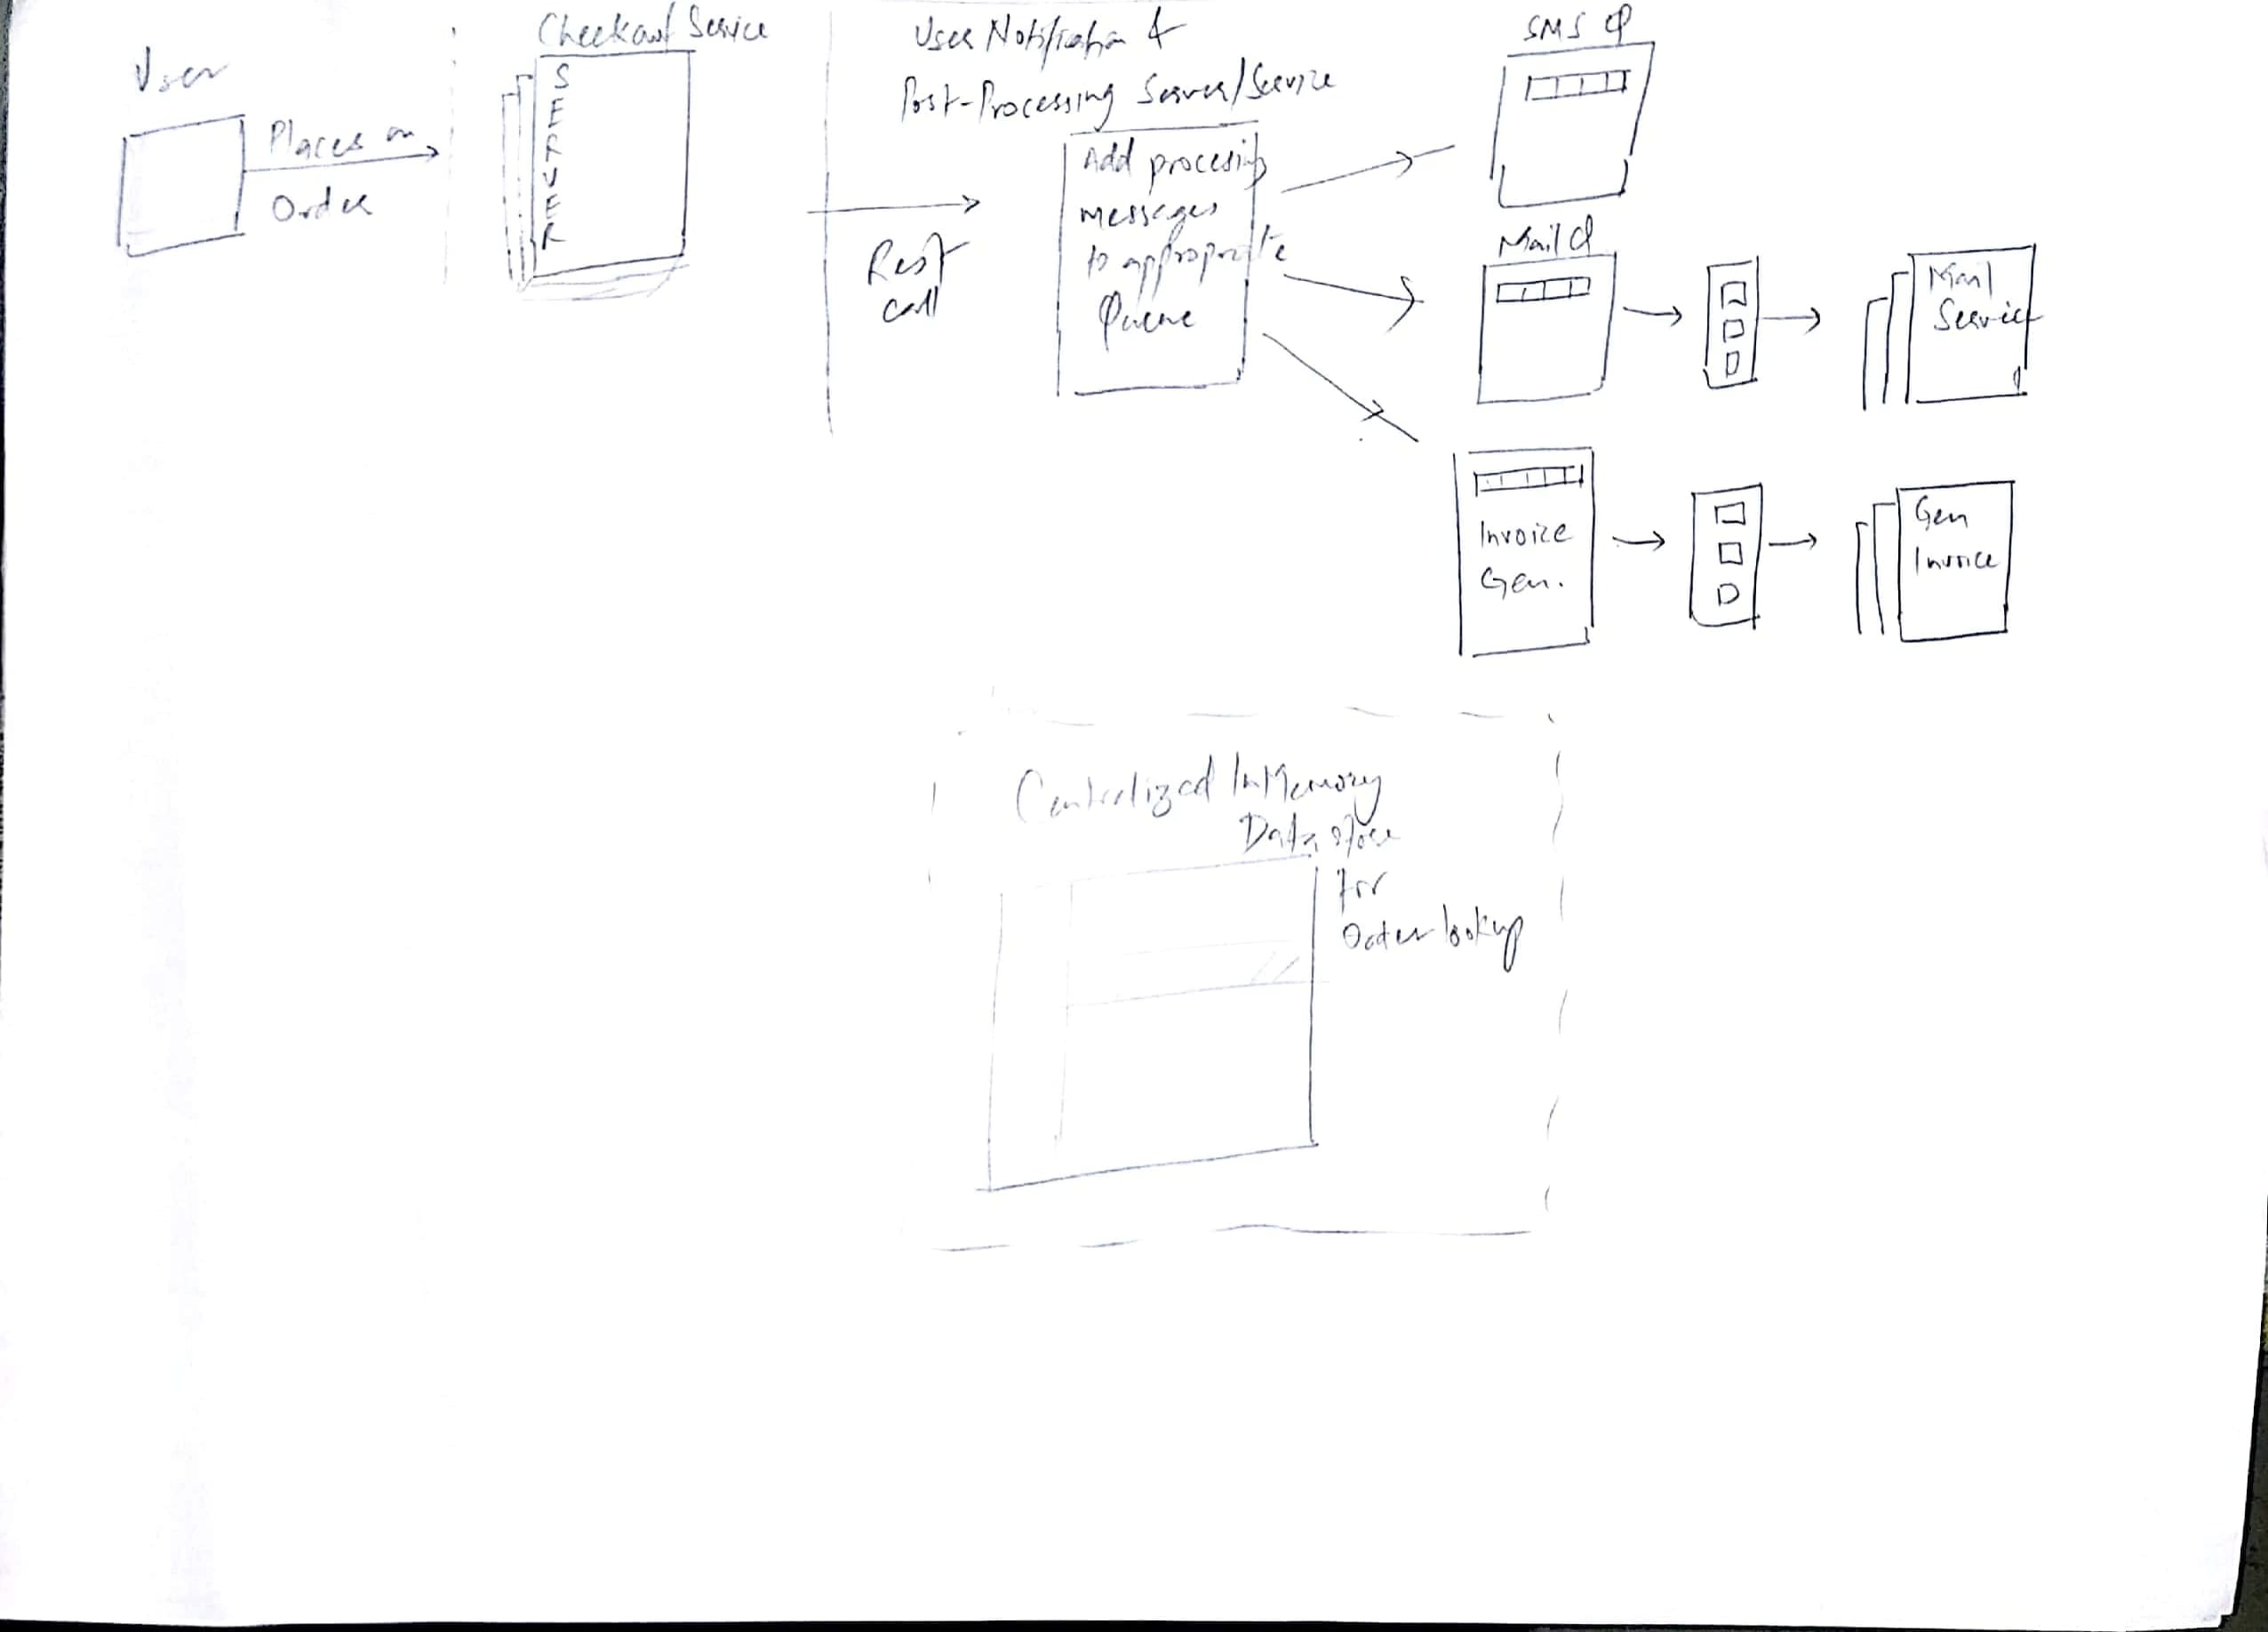 User
Places an
Order
Checkout Service
S
E
R
V
E
R
Rest
call
User Notification &
Post-Processing Server/Service
Add processing
messages
to appropriate
Queue
SMS Q
Mail Q
Mail
Service
Invoice
Gen.
Gen
Invoice
Centralized InMemory
Data store
for
Order lookup